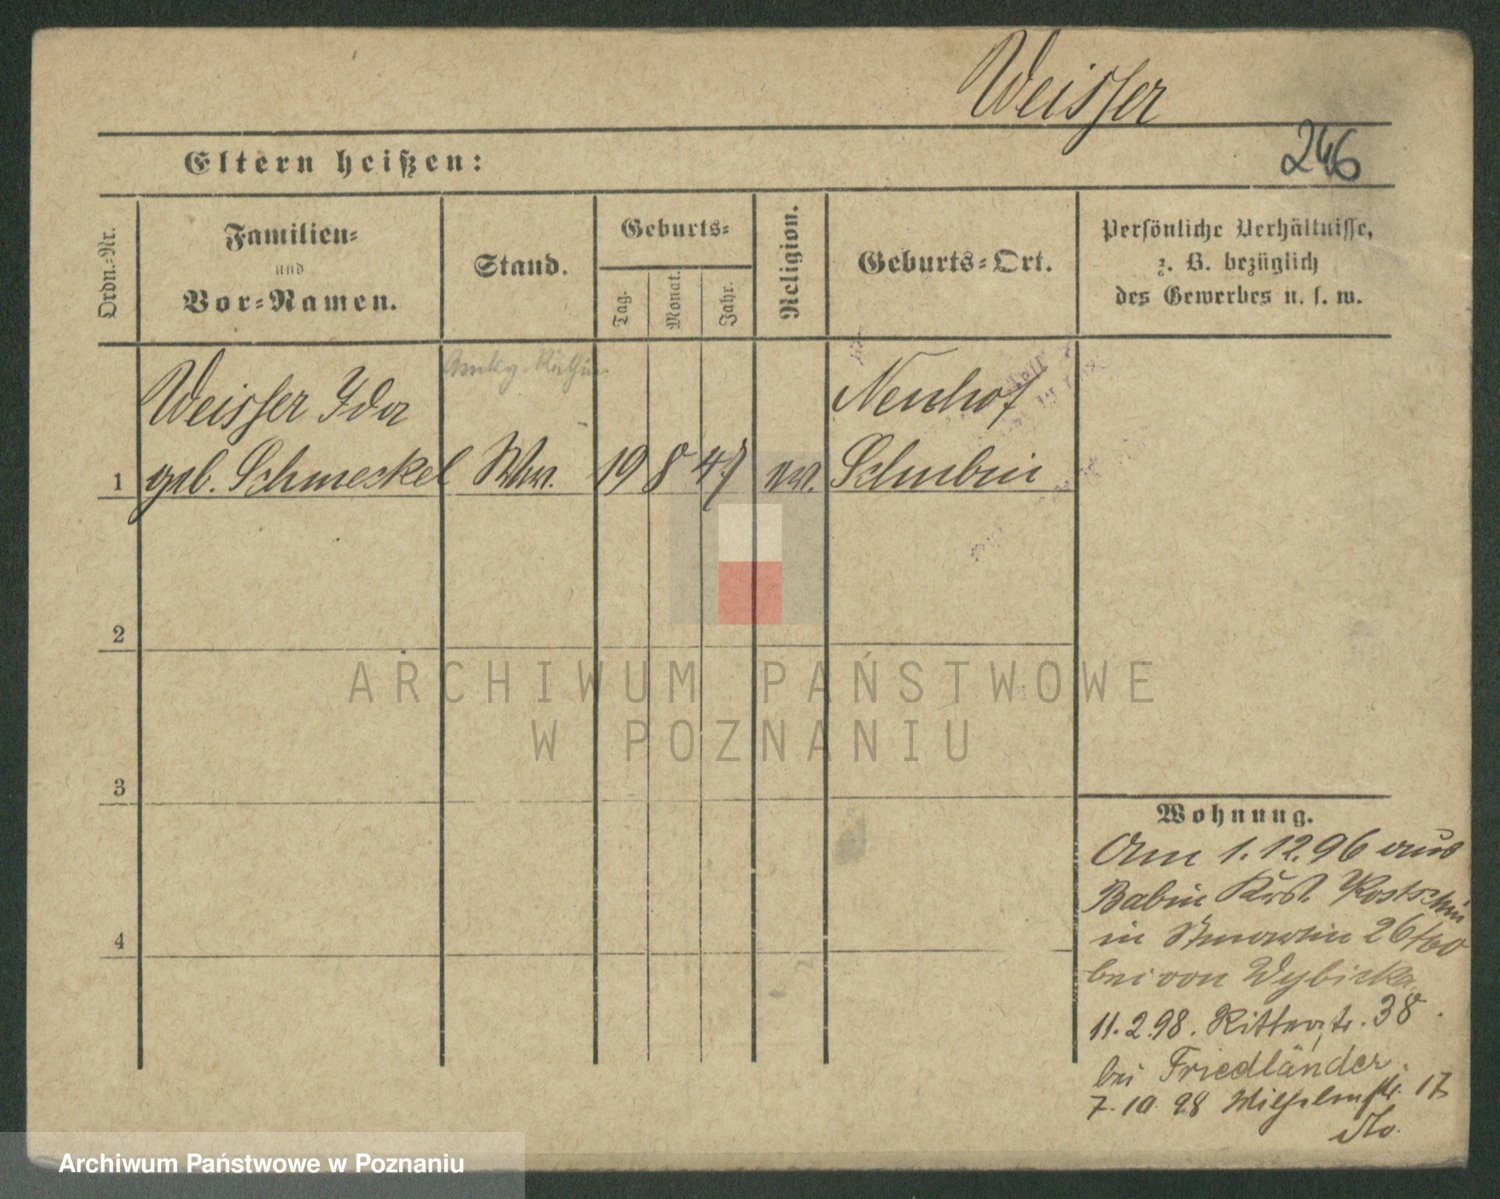 Weisser
246
Eltern heißen:
Ordn.-Nr.
Familien-
und
Vor-Namen.
Stand.
Geburts-
Tag.
Monat.
Jahr.
Religion.
Geburts-Ort.
Persönliche Verhältnisse,
z. B. bezüglich
des Gewerbes u. s. w.
Weisser Ida
Neuhof
1 geb. Schmeckel Ww. 19 8 47 ev. Schubin
2
3
4
ARCHIWUM PAŃSTWOWE
W POZNANIU
Wohnung.
Am 1.12.96 aus
Babin Krs. Kostschin
in 26/60
bei von Wybicka
11.2.98. Ritterstr. 38.
bei Friedländer.
7.10.98 Wilhelmstr. 17
Archiwum Państwowe w Poznaniu